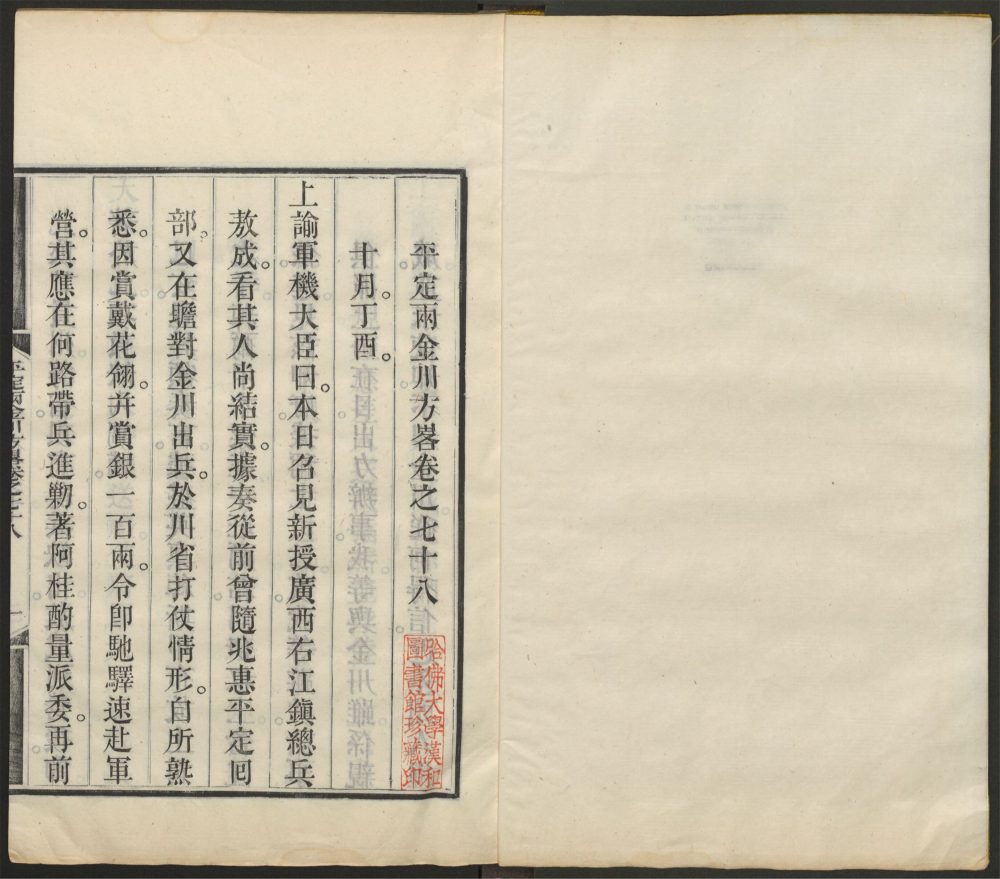 平定兩金川方畧卷之七十八
十月。丁酉。
上諭軍機大臣曰。本日召見新授廣西右江鎮總兵
敖成。看其人尚結實。據奏從前曾隨兆惠平定囘
部。又在瞻對金川出兵。於川省打仗情形。自所熟
悉。因賞戴花翎。幷賞銀一百兩。令卽馳驛速赴軍
營。其應在何路帶兵進勦。著阿桂酌量派委。再前
哈佛大學漢和
圖書館珍藏印